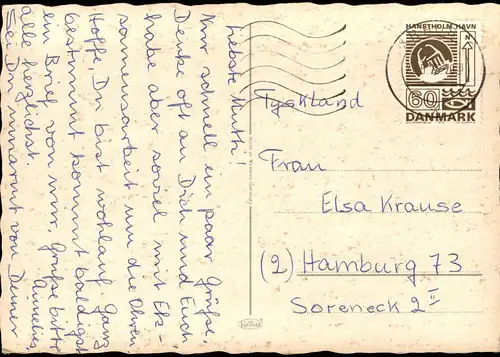 Liebste Mutti!
Nur schnell ein paar Grüße.
Denke oft an Dich und Euch,
habe aber soviel mit Eks-
amensarbeit um die Ohren.
Hoffe, Du bist wohlauf. Ganz
bestimmt kommt baldigst
ein Brief von mir. Grüße bitte
alle herzlichst.
Sei Du umarmt von Deiner
Annelies
HANSTHOLM HAVN
N
60
DANMARK
Tyskland
Frau
Elsa Krause
(2) Hamburg 73
Soreneck 2 II